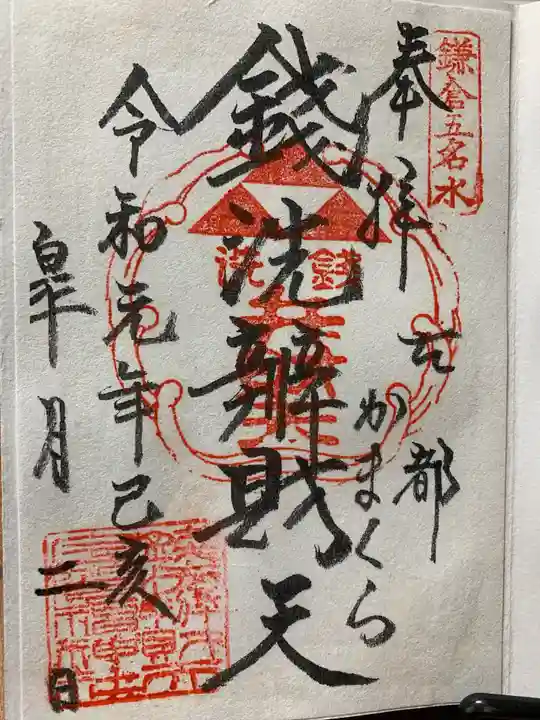 鎌倉五名水
奉拝
古都
かまくら
銭洗辨財天
銭洗
令和元年己亥
皐月二日